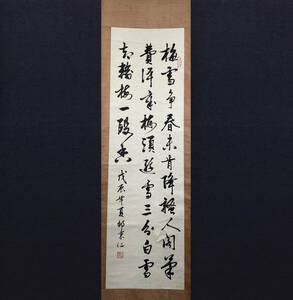 梅雪争春未肯降騷人閣筆
費評章梅須遜雪三分白雪
却輸梅一段香 戊辰年夏